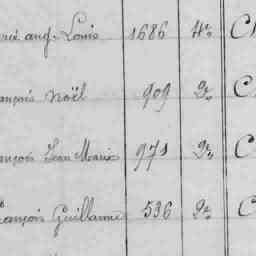 ang. Louis 1686 4e C
ançois Noël 909 2e C
ançois Jean Marie 971 2e C
ançois Guillaume 536 2e C